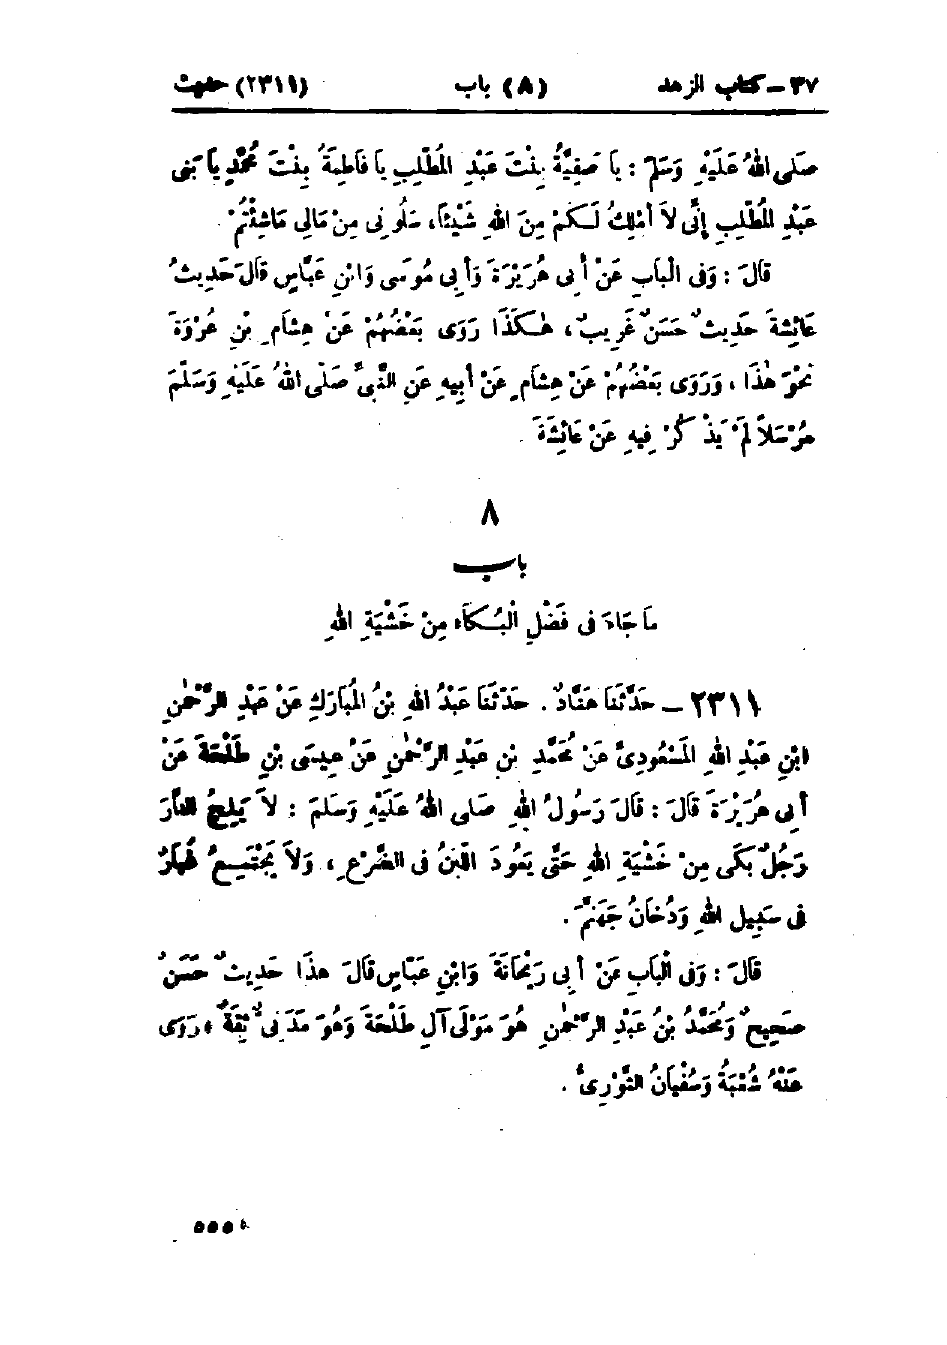 ٣٧ – كتاب الزهد (٨) باب (٢٣١١) حديث
صَلَّى اللهُ عَلَيْهِ وَسَلَّمَ : يَا صَفِيَّةُ بِنْتَ عَبْدِ الْمُطَّلِبِ يَا فَاطِمَةُ بِنْتَ مُحَمَّدٍ يَا بَنِي
عَبْدِ الْمُطَّلِبِ إِنِّي لَا أَمْلِكُ لَكُمْ مِنَ اللهِ شَيْئًا، سَلُونِي مِنْ مَالِي مَا شِئْتُمْ.
قَالَ : وَفِي الْبَابِ عَنْ أَبِي هُرَيْرَةَ وَأَبِي مُوسَى وَابْنِ عَبَّاسٍ قَالَ حَدِيثُ
عَائِشَةَ حَدِيثٌ حَسَنٌ غَرِيبٌ، هٰكَذَا رَوَى بَعْضُهُمْ عَنْ هِشَامِ بْنِ عُرْوَةَ
نَحْوَ هٰذَا ، وَرَوَى بَعْضُهُمْ عَنْ هِشَامٍ عَنْ أَبِيهِ عَنِ النَّبِيِّ صَلَّى اللهُ عَلَيْهِ وَسَلَّمَ
مُرْسَلًا لَمْ يَذْكُرْ فِيهِ عَنْ عَائِشَةَ .
٨
باب
مَا جَاءَ فِي فَضْلِ الْبُكَاءِ مِنْ خَشْيَةِ اللهِ
٢٣١١ – حَدَّثَنَا هَنَّادٌ . حَدَّثَنَا عَبْدُ اللهِ بْنُ الْمُبَارَكِ عَنْ عَبْدِ الرَّحْمٰنِ
ابْنِ عَبْدِ اللهِ الْمَسْعُودِيِّ عَنْ مُحَمَّدِ بْنِ عَبْدِ الرَّحْمٰنِ عَنْ عِيسَى بْنِ طَلْحَةَ عَنْ
أَبِي هُرَيْرَةَ قَالَ : قَالَ رَسُولُ اللهِ صَلَّى اللهُ عَلَيْهِ وَسَلَّمَ : لَا يَلِجُ النَّارَ
رَجُلٌ بَكَى مِنْ خَشْيَةِ اللهِ حَتَّى يَعُودَ اللَّبَنُ فِي الضَّرْعِ ، وَلَا يَجْتَمِعُ غُبَارٌ
فِي سَبِيلِ اللهِ وَدُخَانُ جَهَنَّمَ .
قَالَ : وَفِي الْبَابِ عَنْ أَبِي رَيْحَانَةَ وَابْنِ عَبَّاسٍ قَالَ هٰذَا حَدِيثٌ حَسَنٌ
صَحِيحٌ وَمُحَمَّدُ بْنُ عَبْدِ الرَّحْمٰنِ هُوَ مَوْلَى آلِ طَلْحَةَ وَهُوَ مَدَنِيٌّ ثِقَةٌ، رَوَى
عَنْهُ شُعْبَةُ وَسُفْيَانُ الثَّوْرِيُّ .
٥٥٥